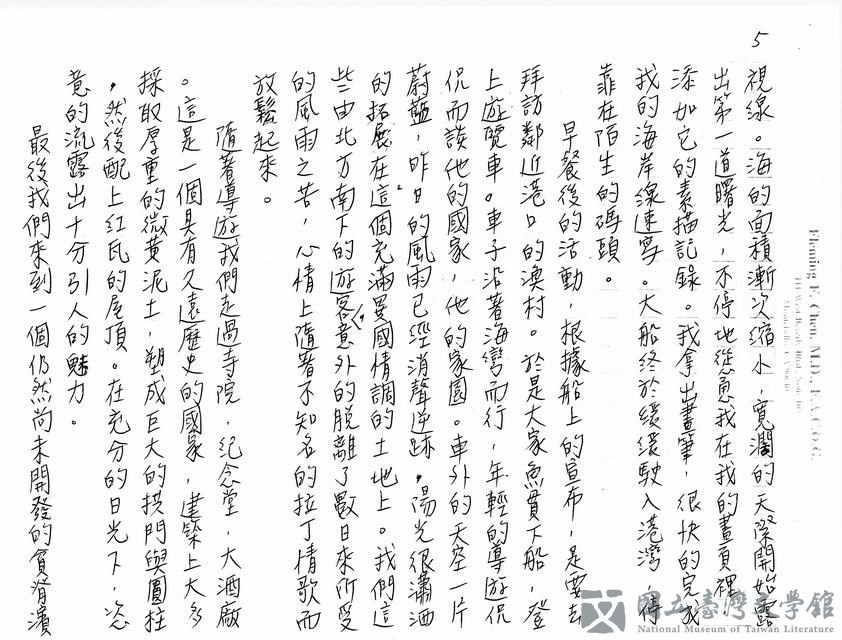 5
視線。海的面積漸次縮小，寬濶的天際開始露
出第一道曙光，不停地慫恿我在我的畫頁裡
添加它的素描記錄。我拿出畫筆，很快的完成
我的海岸線速寫。大船終於緩緩駛入港灣，停
靠在陌生的碼頭。
早餐後的活動，根據船上的宣布，是要去
拜訪鄰近港口的漁村。於是大家魚貫下船，登
上遊覽車。車子沿著海灣而行，年輕的導遊侃
侃而談他的國家，他的家園。車外的天空一片
蔚藍，昨日的風雨已經消聲逆跡，陽光很瀟洒
的拓展在這個充滿異國情調的土地上。我們這
些由北方南下的遊客，意外的脫離了數日來所受
的風雨之苦，心情上隨著不知名的拉丁情歌而
放鬆起來。
隨著導遊我們走過寺院，紀念堂，大酒廠
。這是一個具有久遠歷史的國家，建築上大多
採取厚重的微黃泥土，塑成巨大的拱門與圓柱
，然後配上紅瓦的屋頂。在充分的日光下，恣
意的流露出十分引人的魅力。
最後我們來到一個仍然尚未開發的貧脊濱
Fleming F. Chen, M.D., F.A.C.O.G.
國立臺灣文學館
National Museum of Taiwan Literature